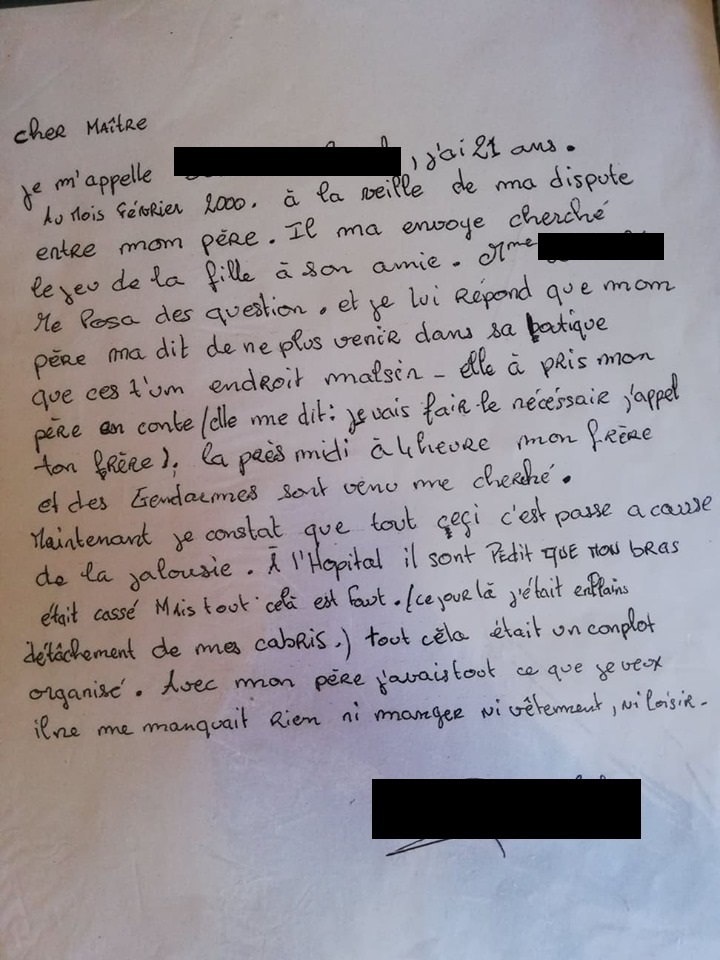 cher Maître
je m'appelle , j'ai 21 ans.
Au Mois Février 2000. à la veille de ma dispute
entre mom père. Il ma envoye cherché
le jeu de la fille à son amie. Mme
Me Posa des question. et je lui Répond que mom
père ma dit de ne plus venir dans sa boutique
que ces t'um endroit malsin - elle à pris mon
père en conte (elle me dit: je vais fair le nécéssair j'appel
ton frère). la près midi à 4 heure mon frère
et des Gendarmes sont venu me cherché.
Maintenant je constat que tout çeçi c'est passe a cause
de la jalousie. À l'Hopital il sont Pedit QUE MON bras
était cassé Mais tout celà est faut. (ce jour là j'était enplains
détâchement de mes cabris.) tout cèla était un conplot
organisé. Avec mon père j'avais tout ce que je veux
il ne me manquait Rien ni manger ni vêtement, ni loisir.-